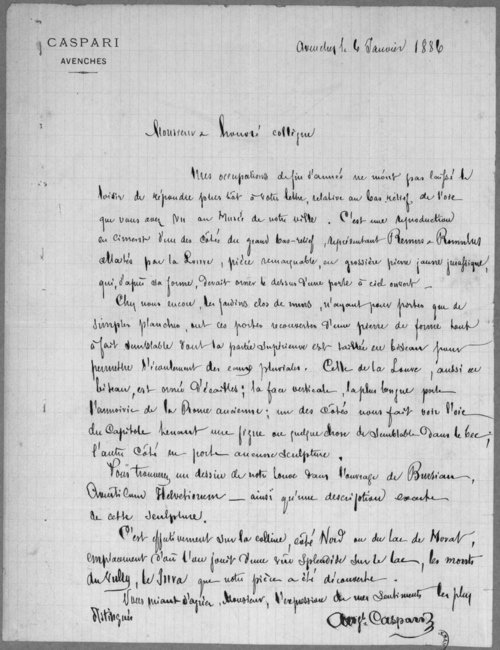 CASPARI
AVENCHES
Avenches le 6 Janvier 1886
Monsieur & honoré collègue
Mes occupations de fin d'année ne m'ont pas laissé le
loisir de répondre plus tôt à votre lettre, relative au bas relief de l'oie
que vous avez vu au Musée de notre ville. C'est une reproduction
en ciment d'un des côtés du grand bas-relief, représentant Remus & Romulus
allaités par la Louve, pièce remarquable, en grossière pierre jaune jurassique,
qui, d'après sa forme, devait orner le dessus d'une porte à ciel ouvert —
Chez nous encore, les jardins clos de murs, n'ayant pour portes que de
simples planches, ont ces portes recouvertes d'une pierre de forme tout
à fait semblable dont la partie supérieure est taillée en biseau pour
permettre l'écoulement des eaux pluviales. Celle de la Louve, aussi en
biseau, est orné d'écailles; la face verticale, la plus longue porte
l'armoirie de la Rome ancienne; un des côtés nous fait voir l'oie
du Capitole tenant une figue ou quelque chose de semblable dans le bec;
l'autre côté ne porte aucune sculpture.
Vous trouverez un dessin de notre louve dans l'ouvrage de Bursian,
Aventicum Helvetiorum — ainsi qu'une description exacte
de cette sculpture.
C'est effectivement sur la colline, côté Nord ou du lac de Morat,
emplacement d'où l'on jouit d'une vue splendide sur le lac, les monts
du Vully, le Jura que notre pièce a été découverte.
Vous priant d'agréer, Monsieur, l'expression de mes sentiments les plus
distingués
Aug. Caspari